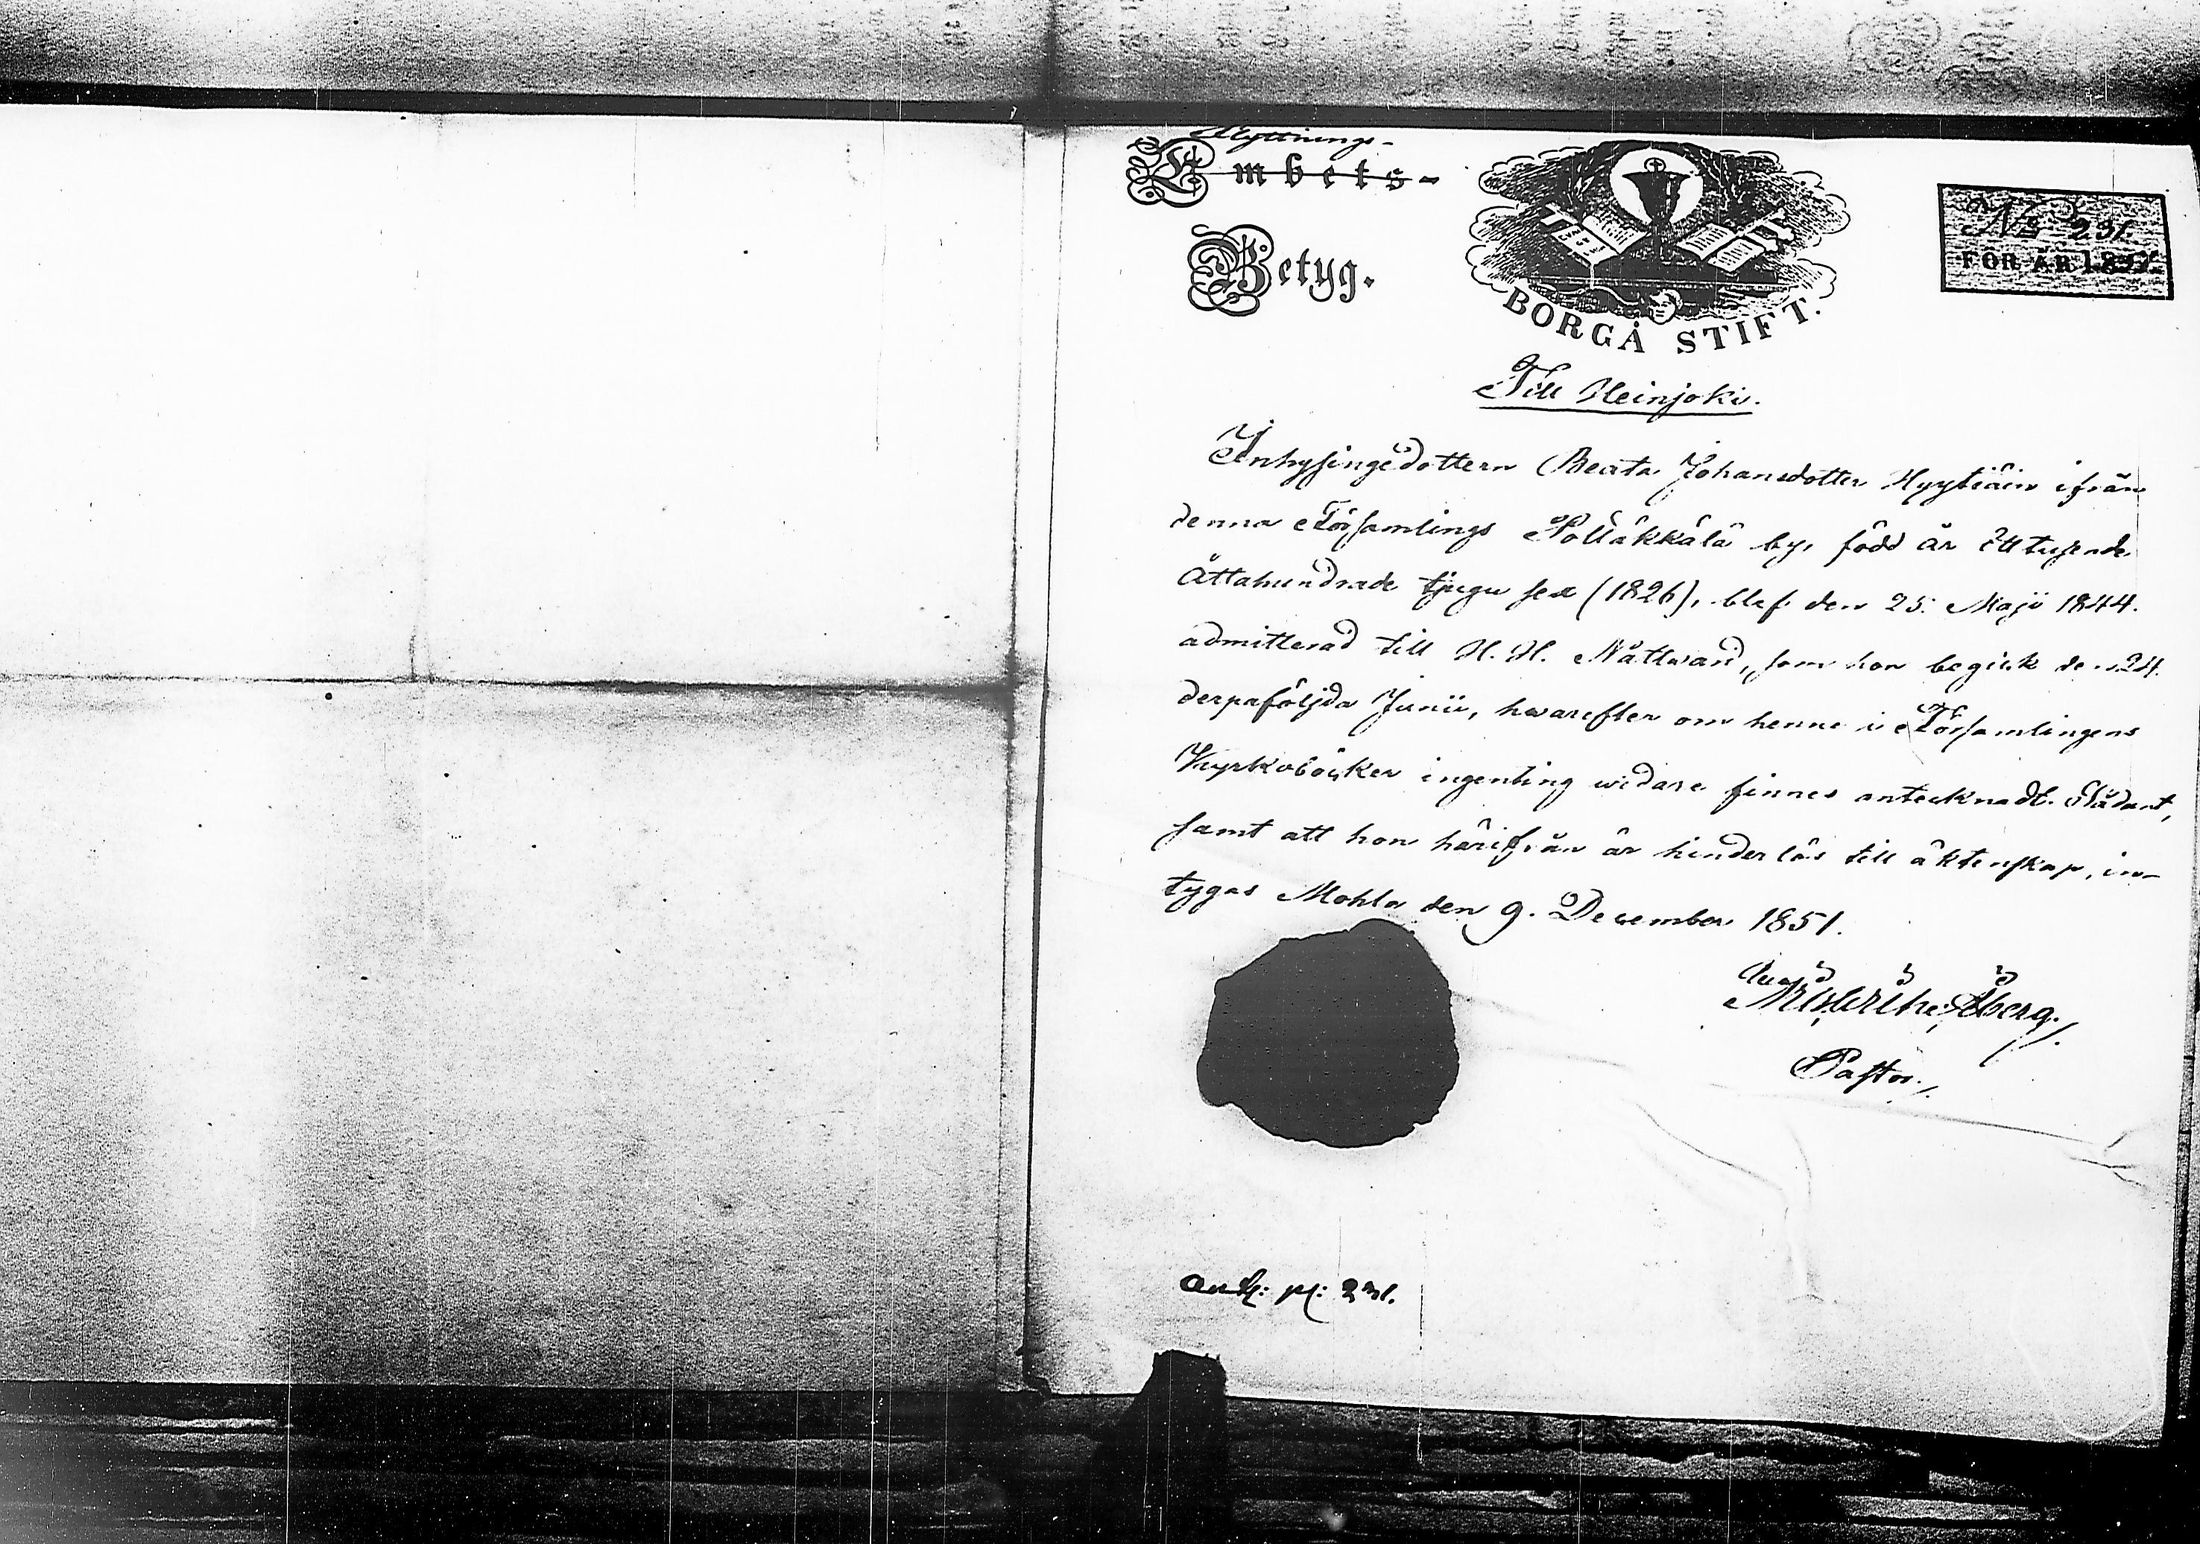 Flyttnings-
Embets-
Betyg.
BORGÅ STIFT.
No 231.
FÖR ÅR 1851.
Till Heinjoki.
Inhysingedottern Beata Johansdotter Hyytiäin ifrån
denna Församlings Pölläkkälä by, född år Ett tusende
Åttahundrade tjugu sex (1826), blef den 25. Maji 1844.
admitterad till H. H. Nattward, som hon begick den 24.
derpaföljda Junii, hwarefter om henne i Församlingens
Kyrkoböcker ingenting widare finnes antecknadt. Sådant,
samt att hon härifrån är hinderlös till äktenskap, in-
tygas Mohla den 9. December 1851.
Åberg.
Pastor.
ank: pl: 231.